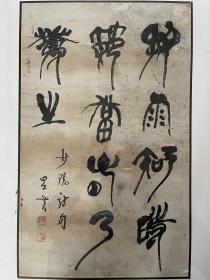 好雨知時
節當春乃
發生
少陵詩句